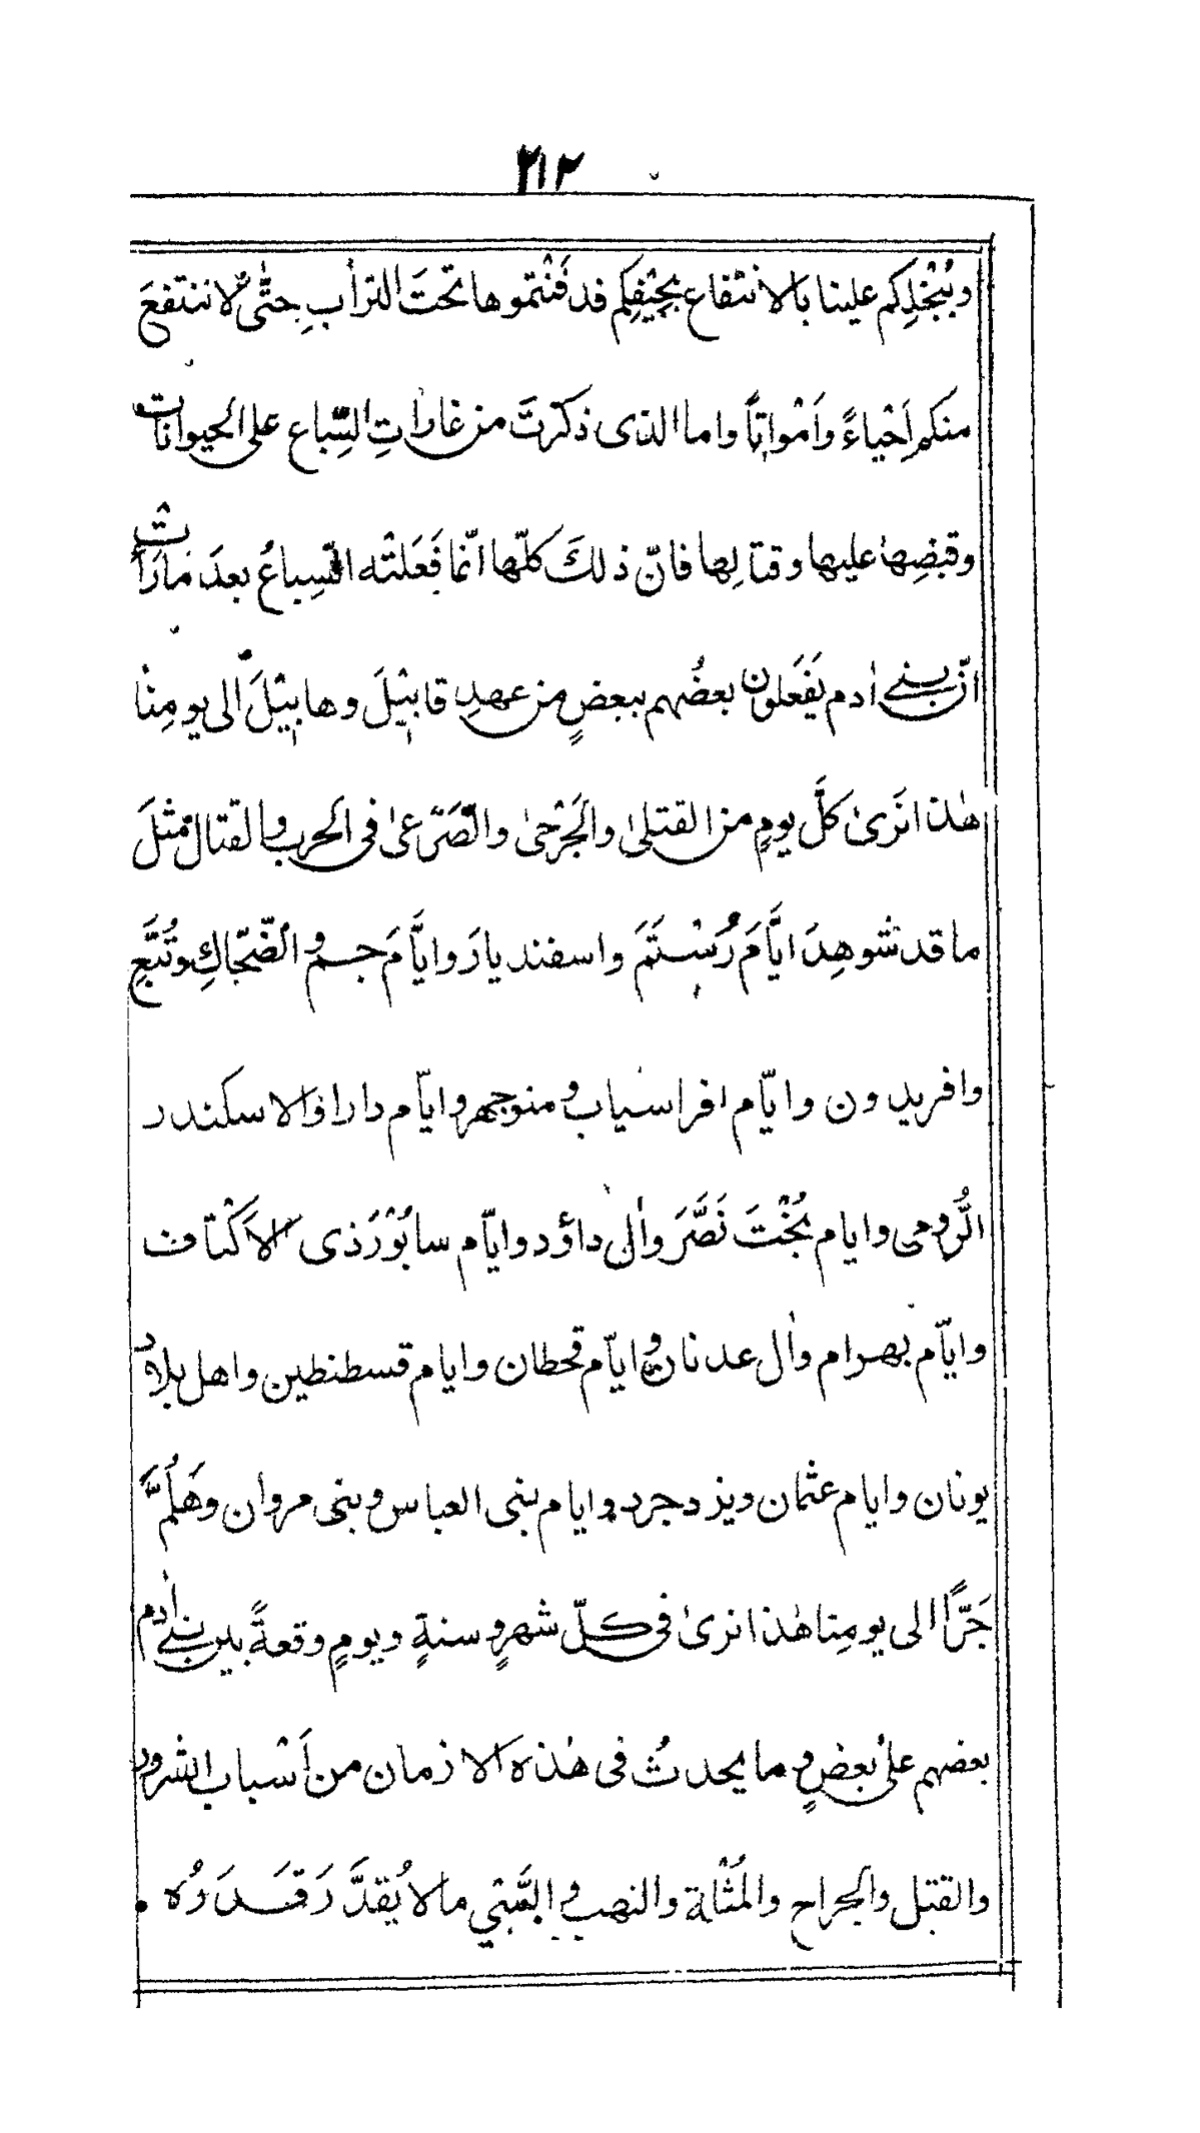 ٢١٢
وبُخْلِكم علينا بالانتفاع بجِيَفِكم فدفَنْتموها تحتَ الترابِ حتّٰى لا ننتفعَ
منكم اَحْياءً واَمْواتاً واما الذى ذكرْتَ من غاراتِ السِّباع على الحيوانات
وقبضِها عليها وقتالِها فانّ ذلكَ كلّها انّما فَعَلتْه السِباعُ بعدَ ما رَأتْ
انّ بنے اٰدم يَفَعَلون بعضُهم ببعضٍ من عهدِ قابيْلَ وهابيْلَ الى يومِنا
هٰذا نَرىٰ كلَّ يومٍ من القتلىٰ والجَرْحىٰ والصَّرْعىٰ فى الحرب والقتال مّثلَ
ما قد شوهِدَ ايَّامَ رُسْتَمَ واسفنديارَ وايَّامَ جم والضّحّاكِ وتُبَّعٍ
وافريدون وايّام افراسياب ومنوجهر وايّام دارا والاسكندر
الرُّومى وايام بُخْتَ نَصَّرَ واٰل داؤد وايّام سابُوْرَذى الاَكْتاف
وايّام بهرام واٰل عدنان وايّام قحطان وايام قسطنطين واهل بلاد
يونان وايام عثمان ويزدجرد وايام بنى العباس وبنى مروان وهَلُمَّ
جَرًّا الى يومِنا هٰذا نرىٰ فى كلّ شهرٍ وسنةٍ ويومٍ وقعةً بين بنے اٰدم
بعضهم علىٰ بعضٍ وما يحدثُ فى هٰذه الازمان من اَسْباب الشرور
والقتل والجراح والمُثْلة والنهب والسَّبْي ما لا يُقدَّرَ قَدَرُه .